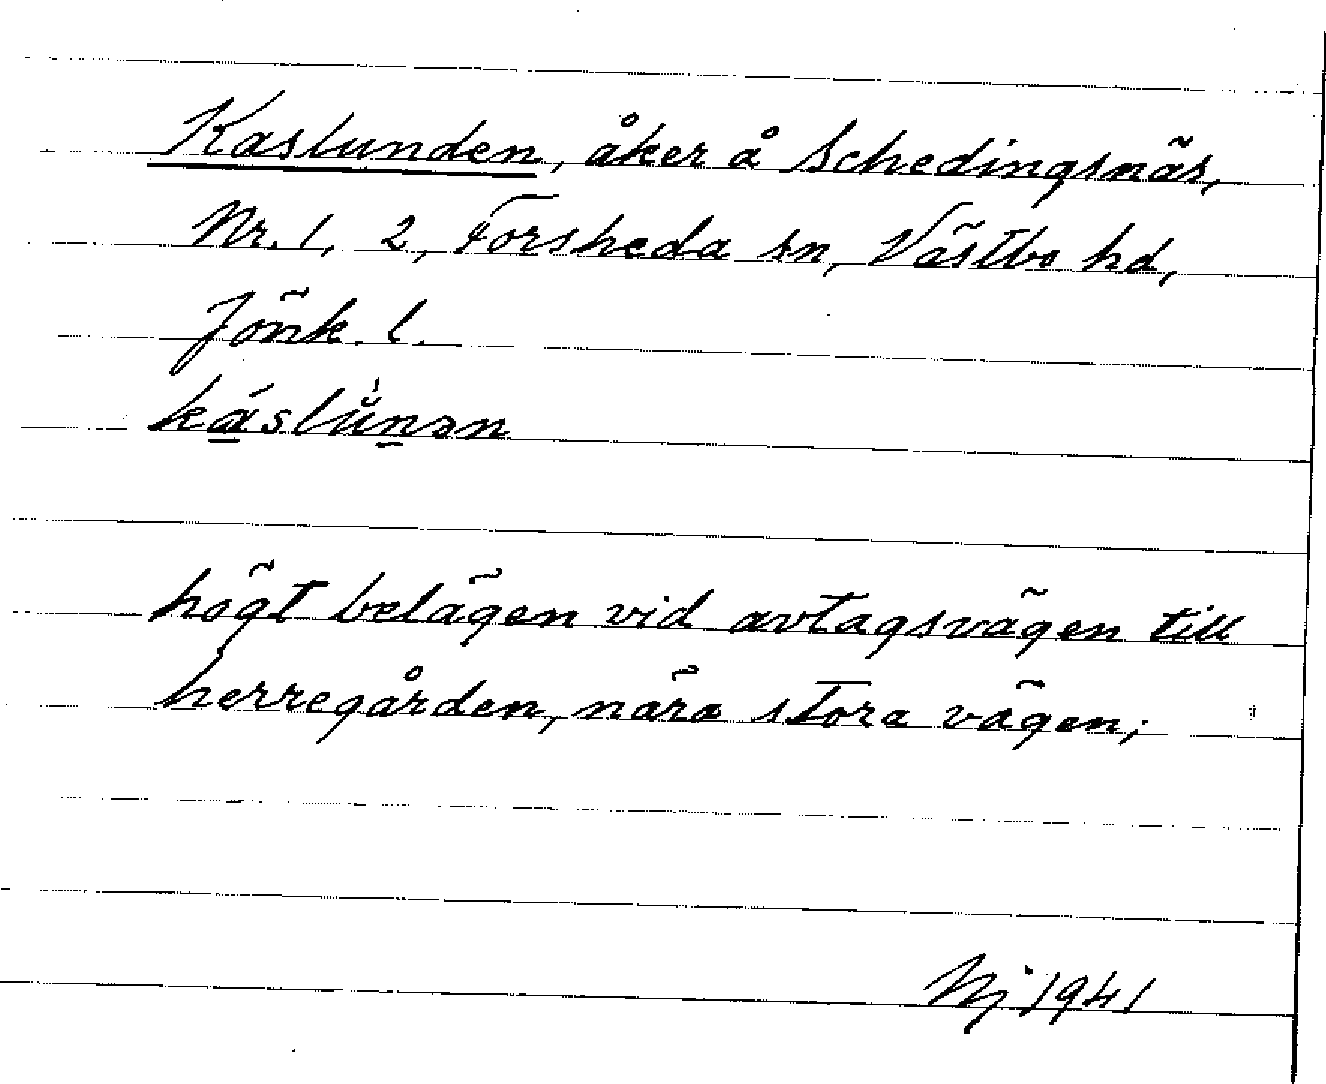 Kaslunden, åker å Schedingsnäs,
Nr. 1, 2, Forsheda sn, Västbo hd,
Jönk. l.
högt belägen vid avtagsvägen till
herregården, nära stora vägen;
Nj 1941